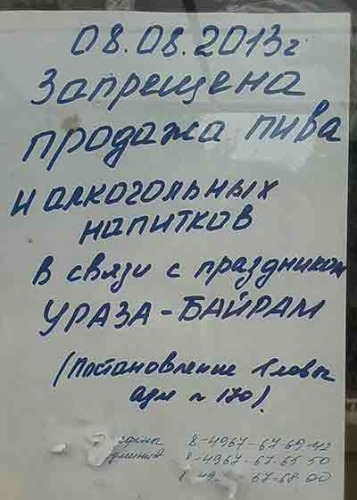 08.08.2013г
Запрещена
продажа пива
и алкогольных
напитков
в связи с праздником
УРАЗА-БАЙРАМ
(Постановление Главы
адм № 170).
8-4967-67-69-42
8-4967-67-65 50
8 49 67-68 00